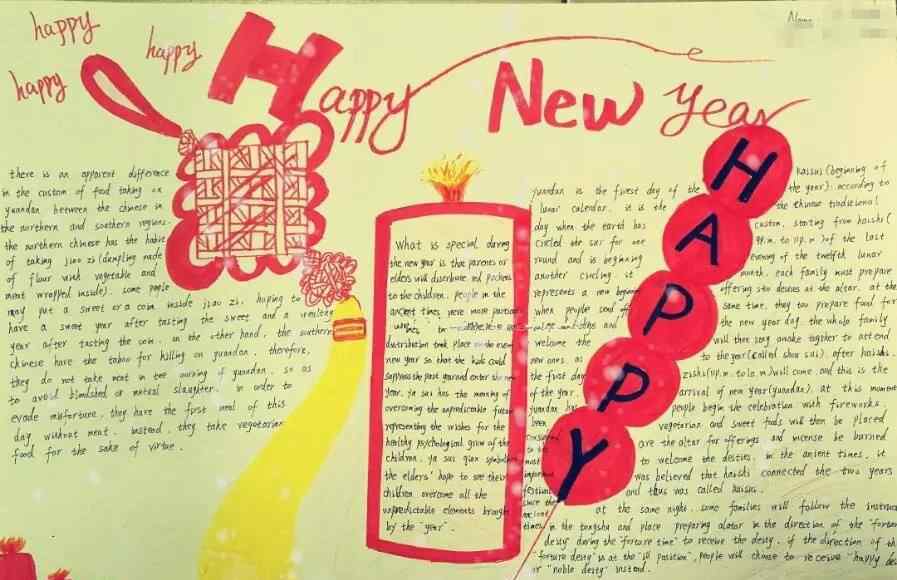 happy
happy
happy
Name
Happy New Year
HAPPY
there is an apparent difference
in the custom of food taking on
yuandan between the chinese in
the northern and southern regions.
the northern chinese has the habit
of taking jiao zi (dumpling made
of flour with vegetable and
meat wrapped inside). some people
may put a sweet or a coin inside jiao zi, hoping to
have a sweet year after tasting the sweet and a wealthy
year after tasting the coin. on the other hand, the southern
chinese have the taboo for killing on yuandan, therefore,
they do not take meat in the morning of yuandan, so as
to avoid bloodshed or mutual slaughter. in order to
evade misfortune, they have the first meal of this
day without meat. instead, they take vegetarian
food for the sake of virtue.
What is special during
the new year is that parents or
elders will distribute red pockets
to the children. people in the
ancient times were more particular
distribution took place on the even
new year so that the kids could
suppress the past year and enter the new
year. ya sui has the meaning of
overcoming the unpredictable future
representing the wishes for the
healthy psychological grow of the
children. ya sui qian symbolize
the elders' hope to see their
children overcome all the
unpredictable elements brought
by the "year".
yuandan is the first day of the
lunar calendar. it is the
day when the earth has
circled the sun for one
round and is beginning
another circling. it
represents a new beginning
when people send off
welcome the
new ones. as
the first day
of the year,
yuandan has
been
considered
to be
most
important
festival
since the
ancient
times.
haisui (beginning of
the year): according to
the chinese traditional
custom, starting from haishi (
9p.m. to 11p.m.) of the last
evening of the twelfth lunar
month, each family must prepare
offering to desties at the altar. at the
same time, they too prepare food for
the new year day. the whole family
will then stay awake together to attend
to the year (called shou sui). after haishi,
zishi (11p.m. to 1a.m.) will come, and this is the
arrival of new year (yuandan). at this moment
people begin the celebration with fireworks.
vegetarian and sweet foods will then be placed
are the altar for offerings and incense be burned
to welcome the desties. in the ancient times, it
was believed that haishi connected the two years
and thus was called haisui.
at the same night, some families will follow the instruc
in the tongshu and place preparing alator in the direction of the "fortun
desty" during the "fortune time" to receive the desty. if the direction of th
"fortune desty" is at the "ill position", people will choose to receive "happy de
or "noble desty" instead.